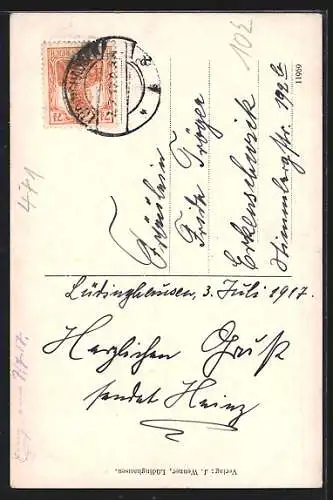 Fräulein
Frida Tröger
Erkenschwick
Stimmbergstr. 192 b
Lüdinghausen, 3. Juli 1917.
Herzlichen Gruß
sendet Heinz
102
471
11969
Verlag: J. Wenner, Lüdinghausen.